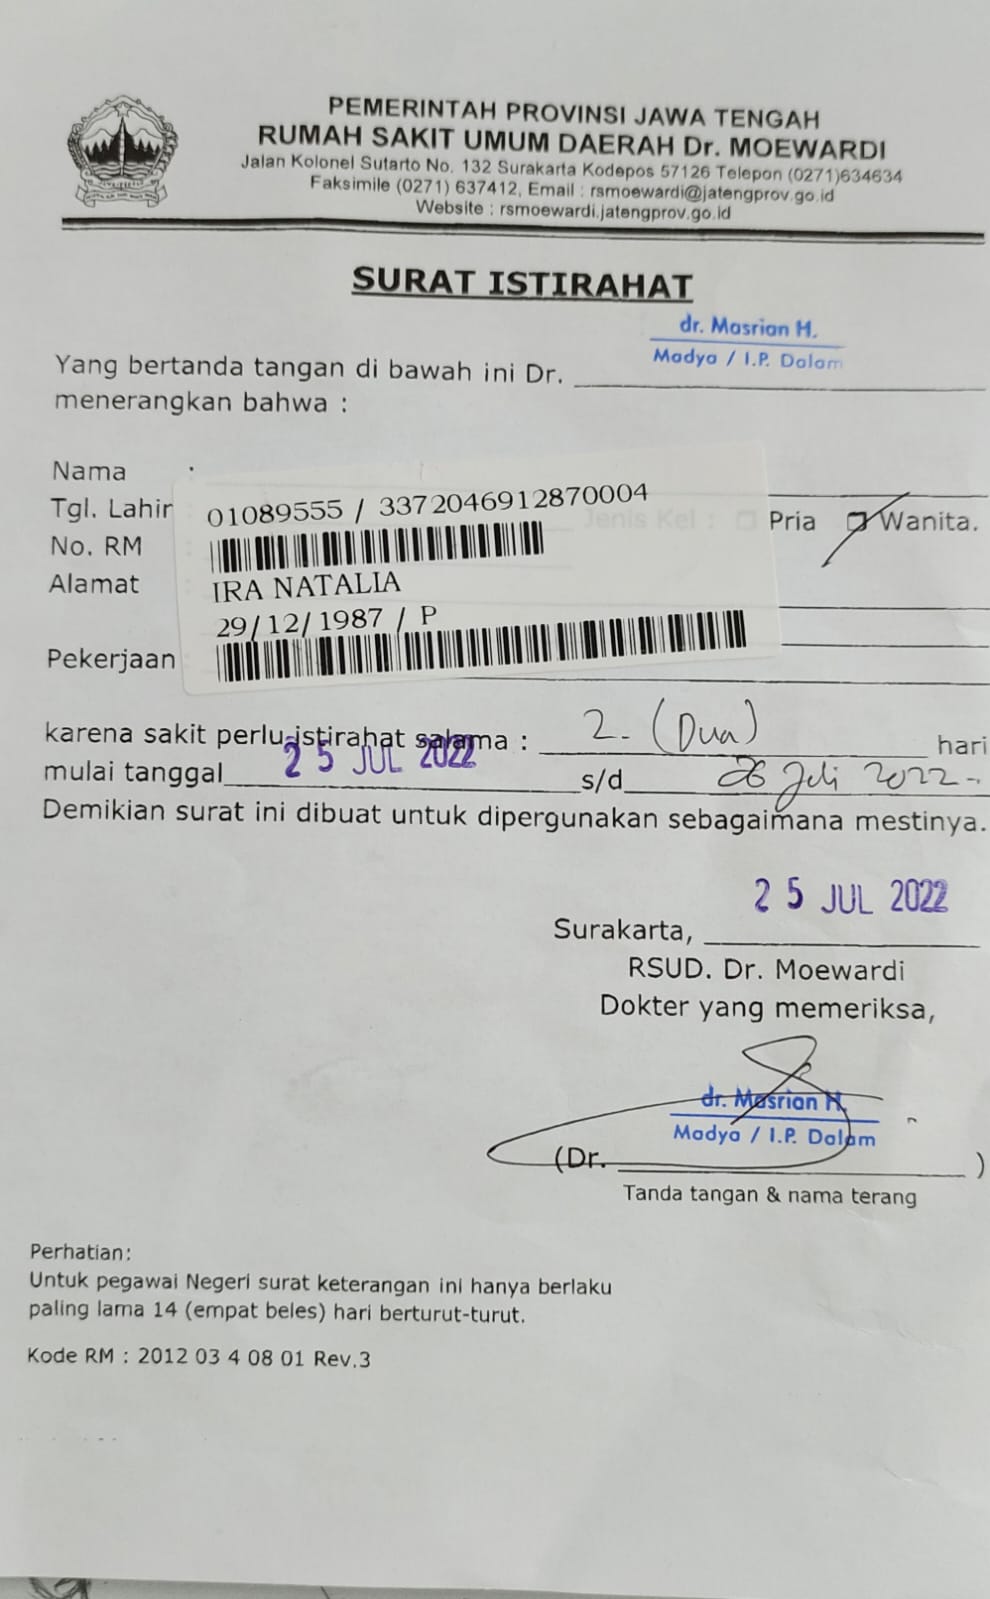 PEMERINTAH PROVINSI JAWA TENGAH
RUMAH SAKIT UMUM DAERAH Dr. MOEWARDI
Jalan Kolonel Sutarto No. 132 Surakarta Kodepos 57126 Telepon (0271)634634
Faksimile (0271) 637412, Email : rsmoewardi@jatengprov.go.id
Website : rsmoewardi.jatengprov.go.id
SURAT ISTIRAHAT
dr. Masrian H.
Madya / I.P. Dalam
Yang bertanda tangan di bawah ini Dr.
menerangkan bahwa :
Nama :
Tgl. Lahir 01089555 / 3372046912870004 Jenis Kel : Pria Wanita.
No. RM :
Alamat : IRA NATALIA
29/12/1987 / P
Pekerjaan
karena sakit perlu istirahat salama : 2. (Dua) hari
mulai tanggal 25 JUL 2022 s/d 26 Juli 2022.
Demikian surat ini dibuat untuk dipergunakan sebagaimana mestinya.
25 JUL 2022
Surakarta,
RSUD. Dr. Moewardi
Dokter yang memeriksa,
dr. Masrian H.
Madya / I.P. Dalam
(Dr. )
Tanda tangan & nama terang
Perhatian:
Untuk pegawai Negeri surat keterangan ini hanya berlaku
paling lama 14 (empat beles) hari berturut-turut.
Kode RM : 2012 03 4 08 01 Rev.3